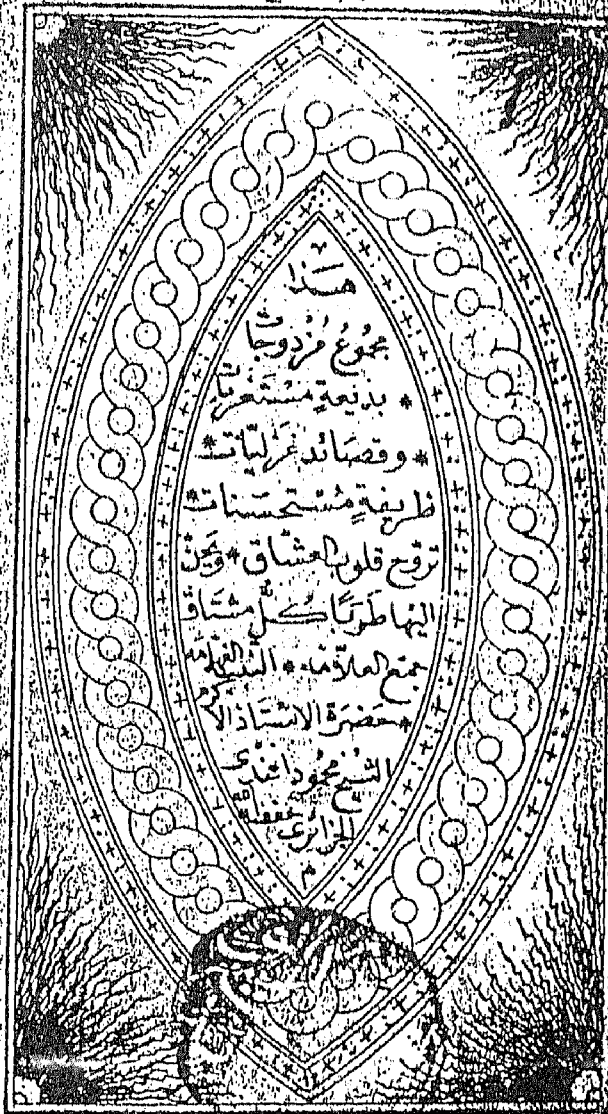 هَذَا
مجمُوعُ مُزْدَوجَات
* بَدِيعَةٍ مُسْتَغْرَبَات
* وقصَائد غَزَليَّات *
ظريفةٍ مُسْتحسَنات *
تروّح قلوب العشّاق * ويَحِنّ
اليْهَا طَرَبًا كُلُّ مشتاق
جمع العلّامه * النّبيه الفهّامه
* حَضرَة الاسْتاذ الاكرم
الشّيخ محمُود افندى
الجزائرى عفى الله عنه
م